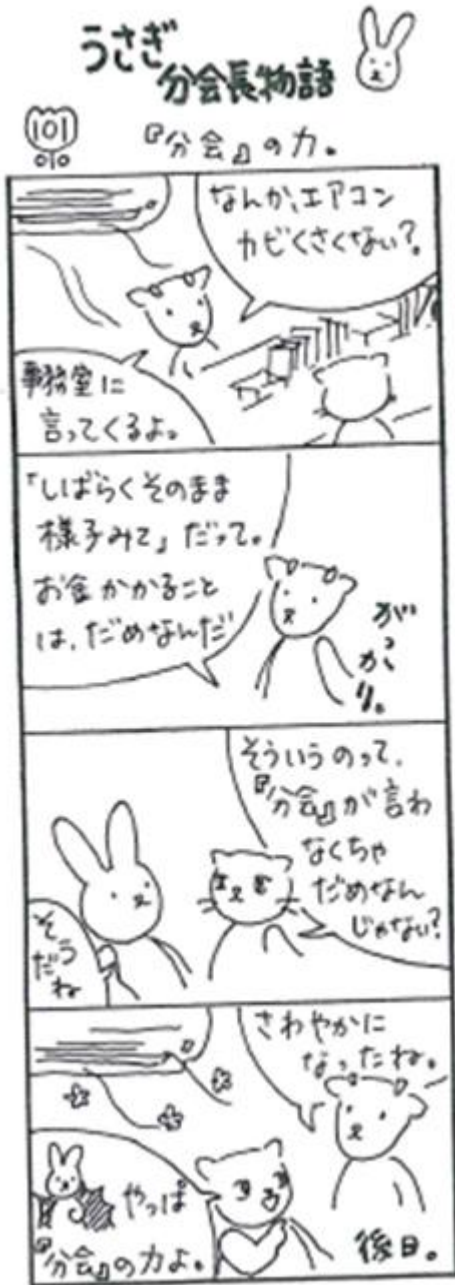 うさぎ
分会長物語
101
『分会』の力。
なんか、エアコン
カビくさくない?
事務室に
言ってくるよ。
「しばらくそのまま
様子みて」だって。
お金かかること
は、だめなんだ
がっかり。
そういうのって、
『分会』が言わ
なくちゃ
だめなん
じゃない?
そう
だね
さわやかに
なったね。
やっぱ
『分会』の力よ。
後日。